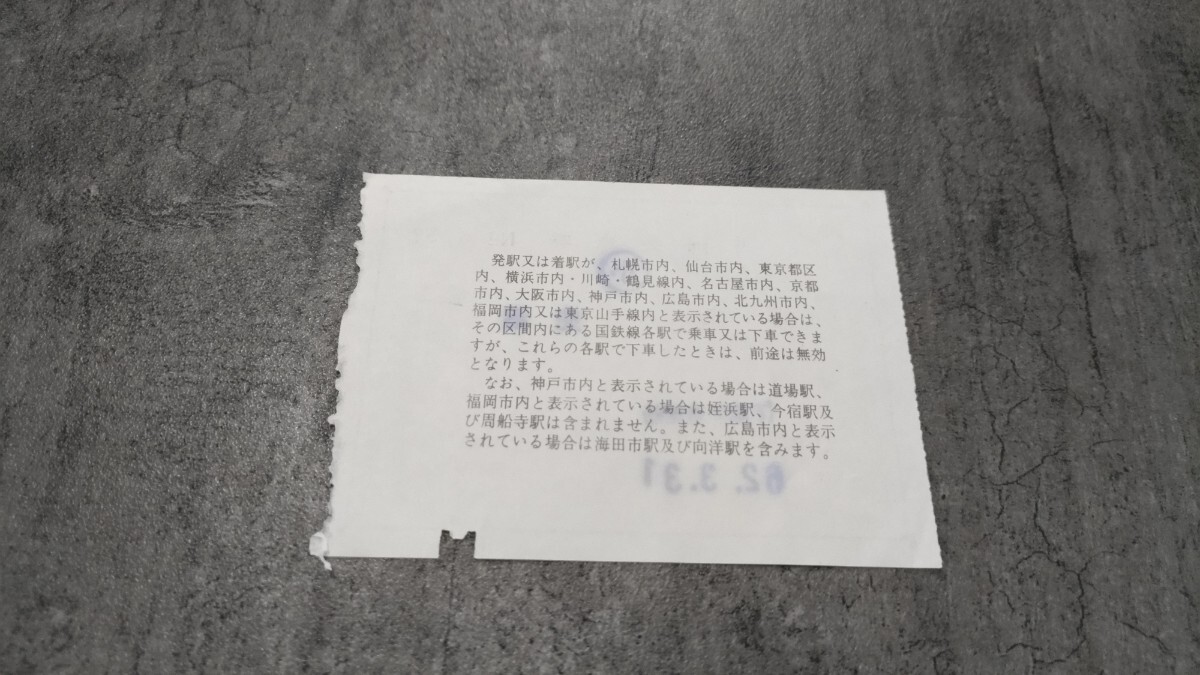 発駅又は着駅が、札幌市内、仙台市内、東京都区
内、横浜市内・川崎・鶴見線内、名古屋市内、京都
市内、大阪市内、神戸市内、広島市内、北九州市内、
福岡市内又は東京山手線内と表示されている場合は、
その区間内にある国鉄線各駅で乗車又は下車できま
すが、これらの各駅で下車したときは、前途は無効
となります。
なお、神戸市内と表示されている場合は道場駅、
福岡市内と表示されている場合は姪浜駅、今宿駅及
び周船寺駅は含まれません。また、広島市内と表示
されている場合は海田市駅及び向洋駅を含みます。
62.3.31